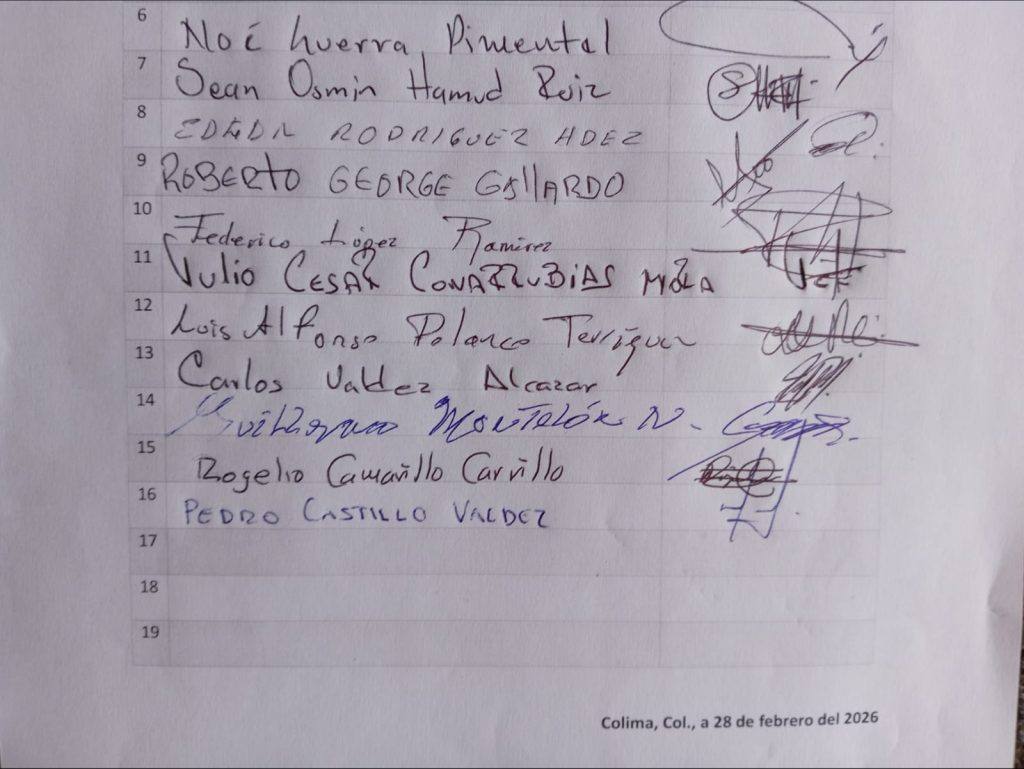 6 Noé Guerra Pimental
7 Sean Osmin Hamud Ruiz
8 EDGAR RODRIGUEZ HDEZ
9 ROBERTO GEORGE GAllARDO
10 Federico López Ramirez
11 Julio CESAR COVARRUBIAS MORA
12 Luis Alfonso Polanco Terríquez
13 Carlos Valdez Alcazar
14 Guillermo MONTELÓN N.
15 Rogelio Camarillo Carrillo
16 PEDRO CASTILLO VALDEZ
17
18
19
Colima, Col., a 28 de febrero del 2026